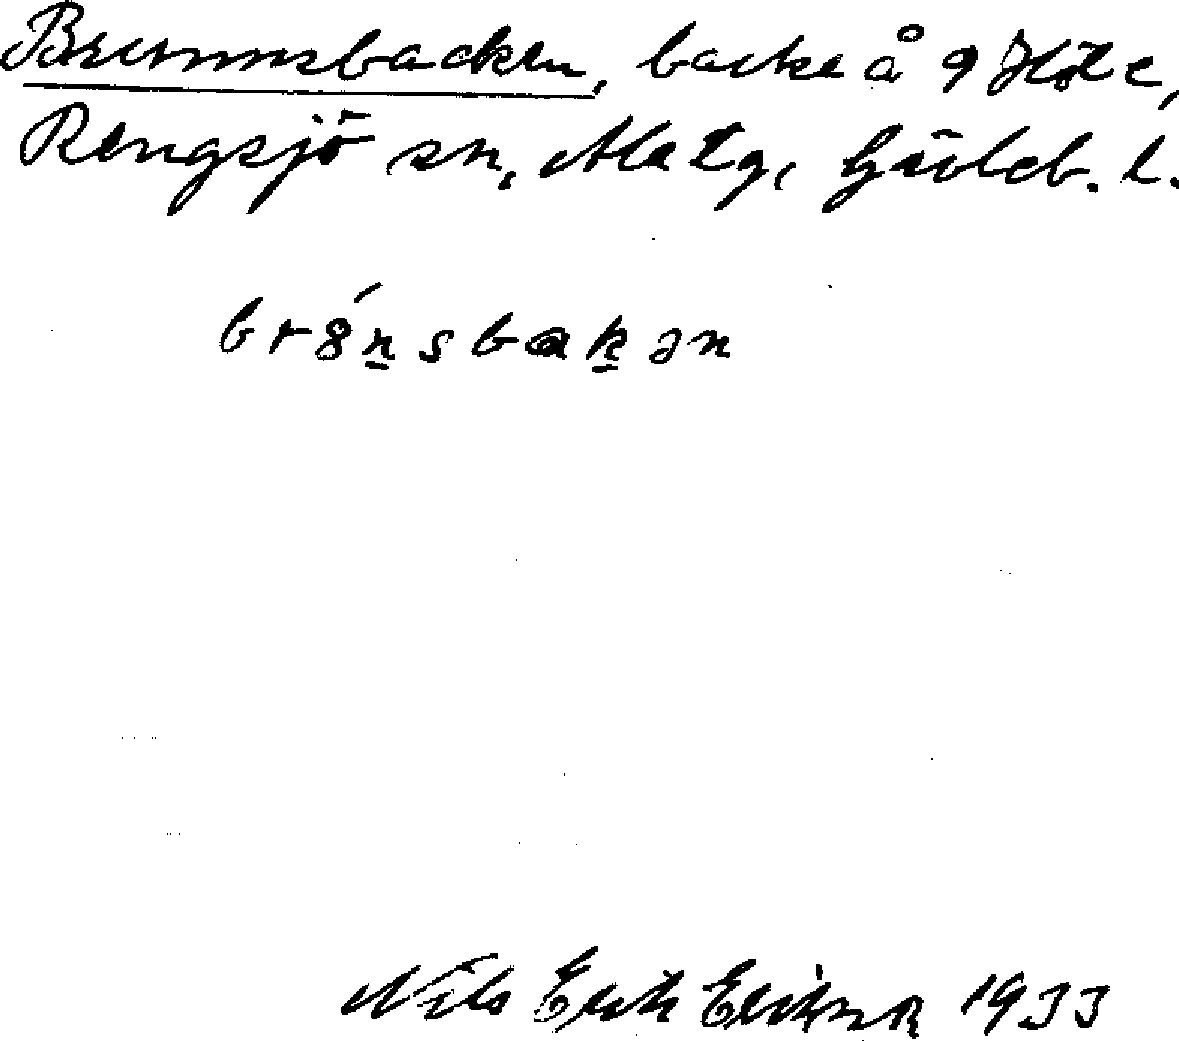 Brunnsbacken, backe å 9 Höle,
Rengsjö sn, Ala tg, Gävleb. l.
br8́n̲sbak̲ən
Nils Erik Erikson 1933